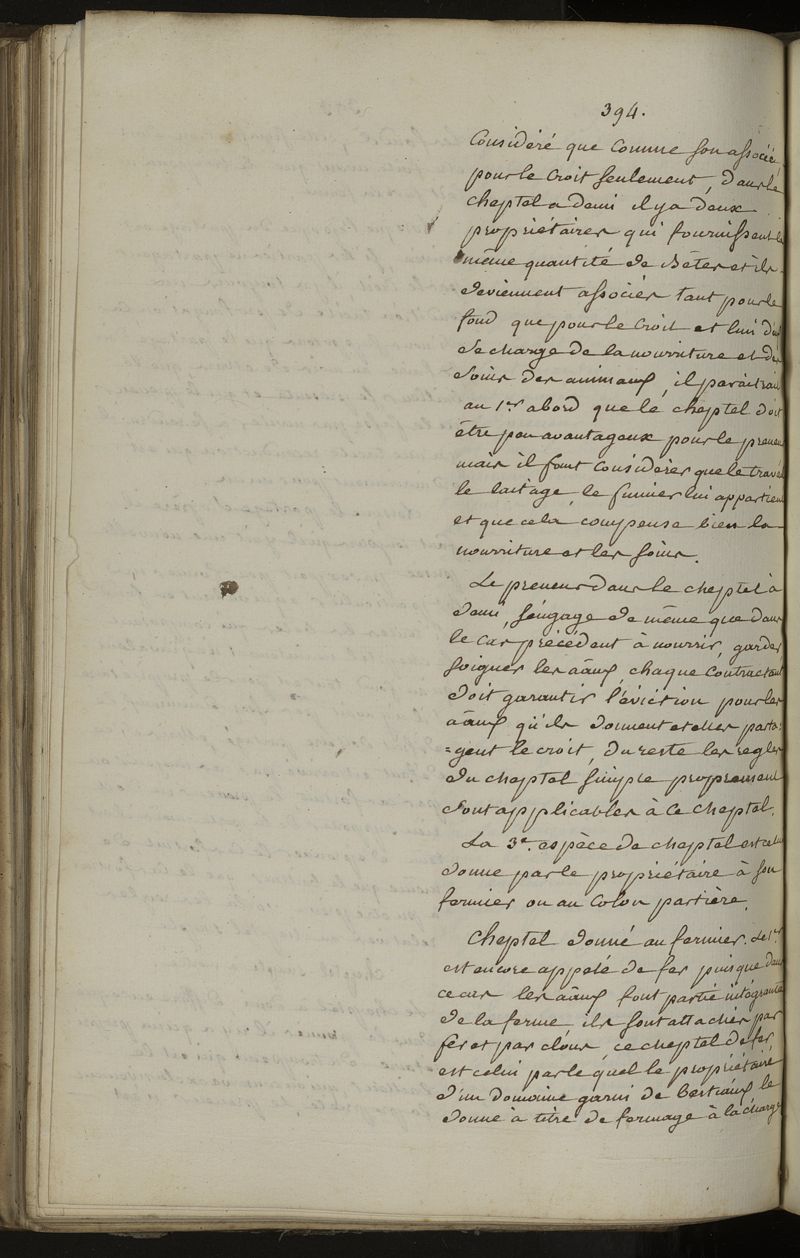 394.
Considéré que comme son associé
pour le croit seulement, dans le
cheptel a demi il y a deux
propriétaires qui fournissent la
même quantité de Bêtes et ils
deviennent associés tant pour le
fond que pour le croit et l'un d'eux
se charge de la nourriture et des
soins des animaux, il paraitrait
au 1er abord que le cheptel doit
être peu avantageux pour le preneur
mais il faut considérer que le travail
le laitage, le fumier lui appartient
et que cela compense bien la
nourriture et les soins.
Le preneur dans le cheptel à
demi, s'engage de même que dans
le cas précédent à nourrir, garder
soigner les aâux, chaque contractant
doit garantir l'éviction pour les
aâux qu'ils donnent et elles parta-
=gent le croit, du reste les regles
du cheptel simple proprement
sont applicables à ce cheptel.
La 3e. espèce de cheptel est celui
donné par le propriétaire à son
fermier ou au Colon partière.
Cheptel donné au fermier. Le 1er
est encore appelé de fer puisque dans
ce cas les aâux font partie intégrante
de la ferme ils sont attachés par
fer et par clous, ce cheptel de fer,
est celui par le quel le propriétaire
d'un domaine garni de bestiaux le
donne à titre de fermage à la charge